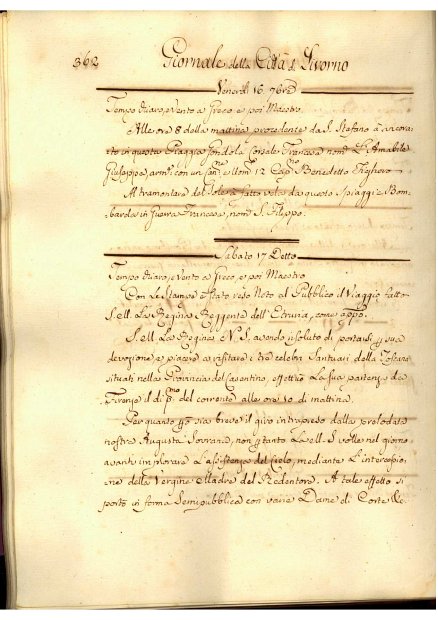 362 Giornale della Città di Livorno
Venerdì 16. 7bre
Tempo chiaro, e vento a Greco, e poi Maestro.
Alle ore 8 della mattina procedente da S. Stefano à ancora-
to in questa Piaggia Gondola Corsale Francesa nom. L'Amabile
Giuseppe arm. con un can. e Uom. 12 Cap.no Benedetto
Al tramontare del Sole à fatto vela da questa Spiaggia Bom-
barda in Guerra Francesa, nom. S. Filippo.
Sabato 17 Detto
Tempo chiaro, e vento a Greco, e poi Maestro
Con La Stampa è stato reso Noto al Pubblico il Viaggio fatto
S. M. La Regina Reggente dell'Etruria, come app.o
S. M. La Regina N. S. avendo risoluto di portarsi p sua
devozione e piacere a visitare i tre celebri Santuari della Toscana
situati nella Provincia del Casentino, effettuò La sua partenza da
Firenze il dì p.mo del corrente alle ore 10 di mattina.
Per quanto p.ò sia breve il giro intrapreso dalla prelodata
nostra Augusta Sovrana, non p tanto La M. S. volle nel giorno
avanti implorare L'assistenza del Cielo, mediante L'intercessio-
ne della Vergine Madre del Redentore. A tale effetto si
portò in forma Semipubblica con varie Dame di Corte &c.